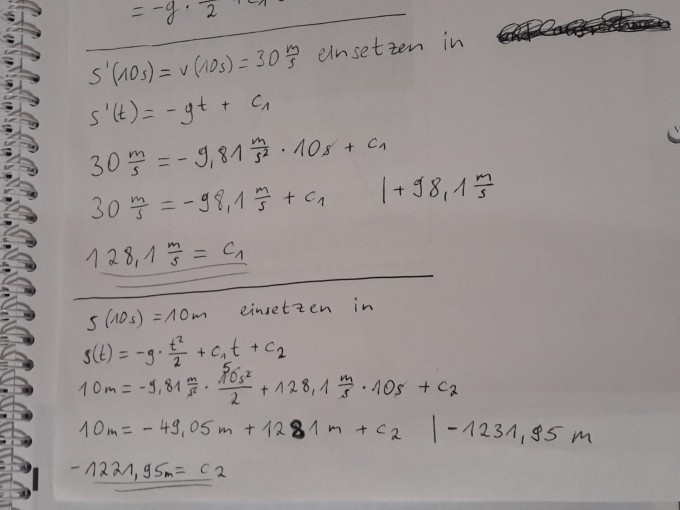 = -g ·
s'(10s) = v(10s) = 30 m/s einsetzen in
s'(t) = -gt + c₁
30 m/s = -9,81 m/s² · 10s + c₁
30 m/s = -98,1 m/s + c₁ | + 98,1 m/s
128,1 m/s = c₁
s(10s) = 10m einsetzen in
s(t) = -g · t²/2 + c₁t + c₂
10m = -9,81 m/s² · 10s²/2 5 + 128,1 m/s · 10s + c₂
10m = -49,05m + 1281m + c₂ | -1231,95 m
-1221,95m = c₂